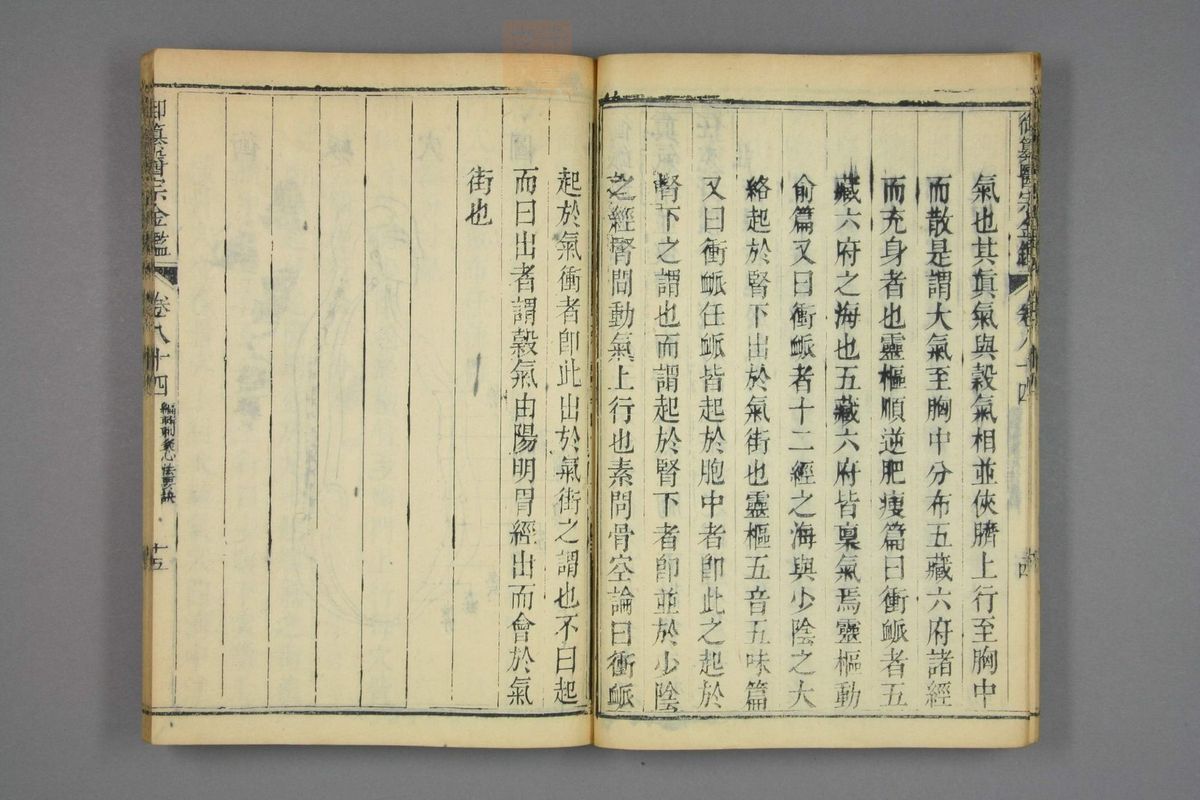 御纂醫宗金鑑
卷八十四
氣也其眞氣與穀氣相並俠臍上行至胸中
而散是謂大氣至胸中分布五藏六府諸經
而充身者也靈樞順逆肥瘦篇曰衝脈者五
藏六府之海也五藏六府皆稟氣焉靈樞動
俞篇又曰衝脈者十二經之海與少陰之大
絡起於腎下出於氣街也靈樞五音五味篇
又曰衝脈任脈皆起於胞中者卽此之起於
腎下之謂也而謂起於腎下者卽並於少陰
之經腎間動氣上行也素問骨空論曰衝脈
起於氣衝者卽此出於氣街之謂也不曰起
而曰出者謂穀氣由陽明胃經出而會於氣
街也
御纂醫宗金鑑
卷八十四
編輯刺灸心法要訣
十五